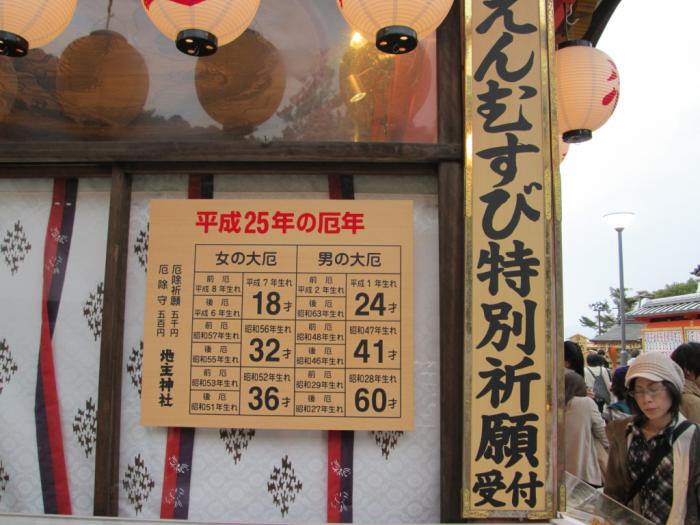 平成25年の厄年
女の大厄
男の大厄
前厄
平成8年生れ
後厄
平成6年生れ
平成7年生れ
18才
前厄
昭和57年生れ
後厄
昭和55年生れ
昭和56年生れ
32才
前厄
昭和53年生れ
後厄
昭和51年生れ
昭和52年生れ
36才
前厄
平成2年生れ
後厄
昭和63年生れ
平成1年生れ
24才
前厄
昭和48年生れ
後厄
昭和46年生れ
昭和47年生れ
41才
前厄
昭和29年生れ
後厄
昭和27年生れ
昭和28年生れ
60才
厄除祈願 五千円
厄除守 五百円
地主神社
えんむすび特別祈願
受付